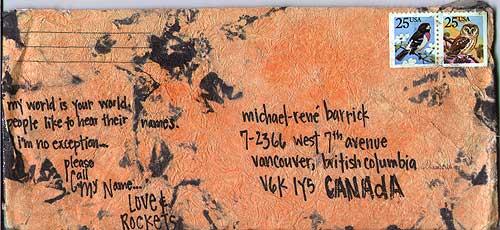 25 USA
25 USA
my world is your world,
people like to hear their names.
i'm no exception...
please
call
my Name...
LOVE &
ROCKETS
michael-rené barrick
7-2366 west 7th avenue
vancouver, british columbia
V6K 1Y5 CANAdA